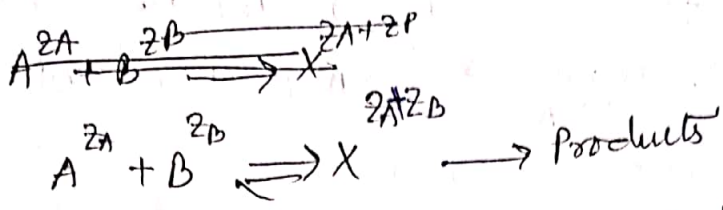 A^ZA + B^ZB ⇌ X^ZA+ZP
A^ZA + B^ZB ⇌ X^ZA+ZB → Products